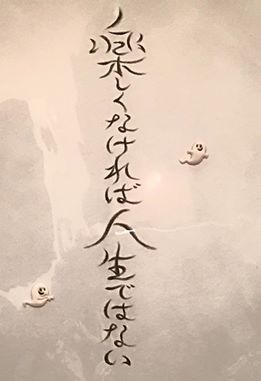 楽しくなければ人生ではない